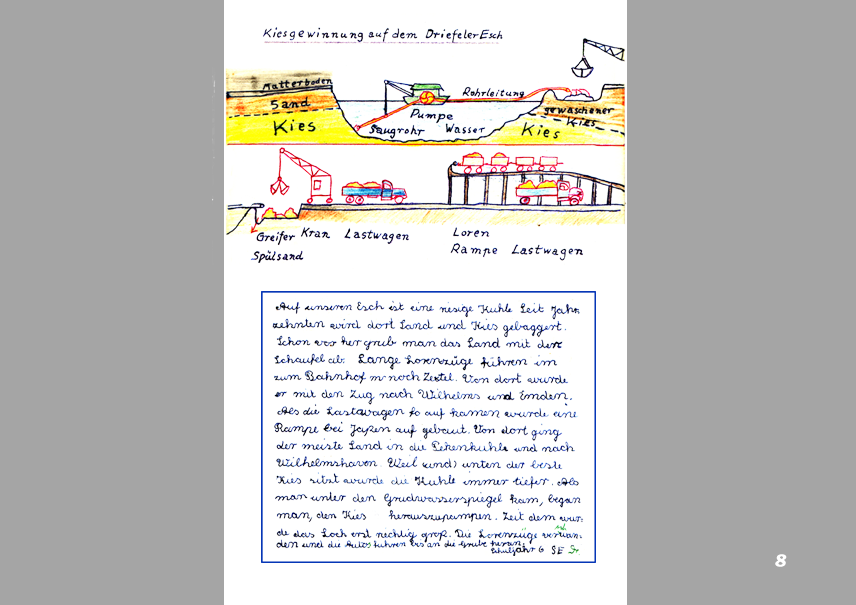 Kiesgewinnung auf dem Driefeler Esch
Matterboden
Sand
Kies
Rohrleitung
Pumpe
Saugrohr Wasser
Kies
gewaschener
Kies
Greifer Kran Lastwagen
Spülsand
Loren
Rampe Lastwagen
Auf unseren Esch ist eine riesige Kuhle Seit Jahr
zehnten wird dort Sand und Kies gebaggert.
Schon vor her grub man das Sand mit der
Schaufel ab. Lange Lorenzüge führen im
zum Bahnhof noch Zetel. Von dort wurde
er mit den Zug nach Wilhelms und Emden.
Als die Lastwagen so auf kamen wurde eine
Rampe bei auf gebaut. Von dort ging
der meiste Sand in die und nach
Wilhelmshaven. Weil und) unten der beste
Kies sitzt wurde die Kuhle immer tiefer. Als
man unter den Grudwasserspiegel kam, began
man, den Kies herauszupampen. Zeit dem wur-
de das Loch erst rechtig groß. Die Lorenzüge verwan-
den und die Autos führen bis an die Grube heran.
Schuljahr 6 SE
8